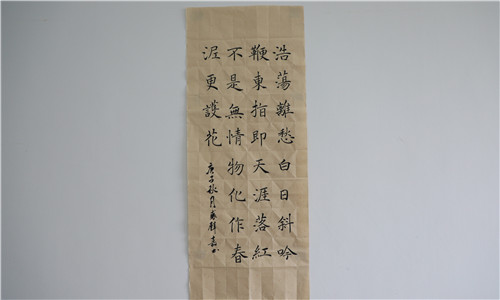 浩蕩離愁白日斜吟
鞭東指即天涯落紅
不是無情物化作春
泥更護花 庚子秋月